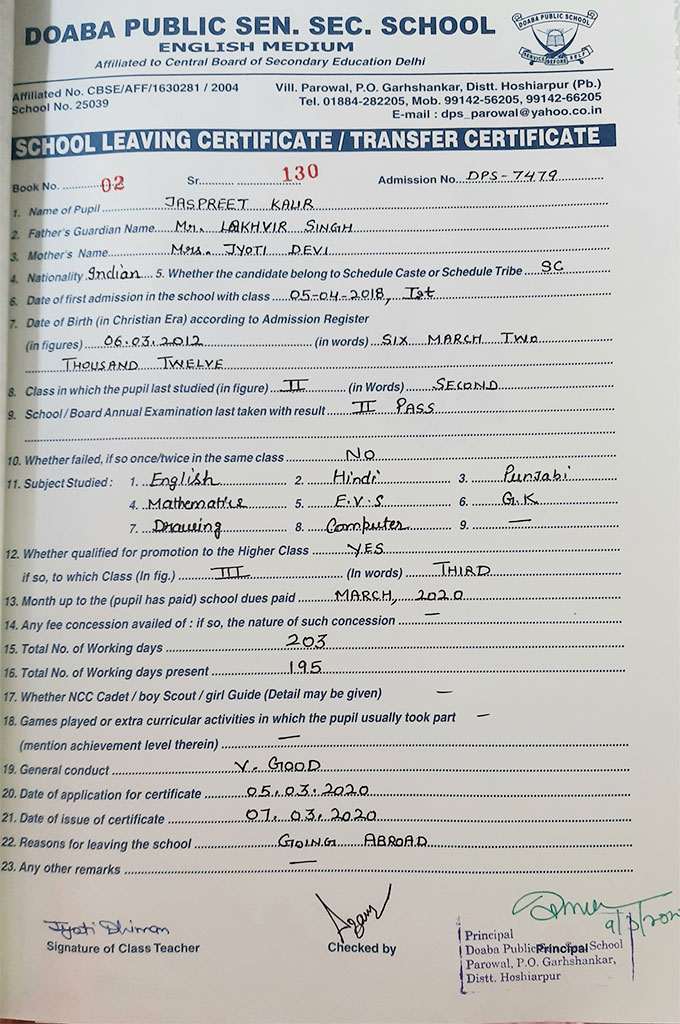 DOABA PUBLIC SEN. SEC. SCHOOL
ENGLISH MEDIUM
Affiliated to Central Board of Secondary Education Delhi
DOABA PUBLIC SCHOOL
SERVICE BEFORE SELF
Affiliated No. CBSE/AFF/1630281 / 2004
School No. 25039
Vill. Parowal, P.O. Garhshankar, Distt. Hoshiarpur (Pb.)
Tel. 01884-282205, Mob. 99142-56205, 99142-66205
E-mail : dps_parowal@yahoo.co.in
SCHOOL LEAVING CERTIFICATE / TRANSFER CERTIFICATE
Book No. 02 Sr. 130 Admission No. DPS-7479
1. Name of Pupil JASPREET KAUR
2. Father's Guardian Name Mr. LAKHVIR SINGH
3. Mother's Name Mrs. JYOTI DEVI
4. Nationality Indian 5. Whether the candidate belong to Schedule Caste or Schedule Tribe SC
6. Date of first admission in the school with class 05-04-2018, Ist
7. Date of Birth (in Christian Era) according to Admission Register
(in figures) 06.03.2012 (in words) SIX MARCH TWO
THOUSAND TWELVE
8. Class in which the pupil last studied (in figure) II (in Words) SECOND
9. School / Board Annual Examination last taken with result II PASS
10. Whether failed, if so once/twice in the same class NO
11. Subject Studied : 1. English 2. Hindi 3. Punjabi
4. Mathematics 5. E.V.S 6. G.K
7. Drawing 8. Computer 9. —
12. Whether qualified for promotion to the Higher Class YES
if so, to which Class (In fig.) III (In words) THIRD
13. Month up to the (pupil has paid) school dues paid MARCH, 2020
14. Any fee concession availed of : if so, the nature of such concession —
15. Total No. of Working days 203
16. Total No. of Working days present 195
17. Whether NCC Cadet / boy Scout / girl Guide (Detail may be given) —
18. Games played or extra curricular activities in which the pupil usually took part —
(mention achievement level therein) —
19. General conduct V. GOOD
20. Date of application for certificate 05.03.2020
21. Date of issue of certificate 07.03.2020
22. Reasons for leaving the school GOING ABROAD
23. Any other remarks —
Jyoti Dhiman
Signature of Class Teacher
Checked by
9/3/202
Principal
Principal
Doaba Public School
Parowal, P.O. Garhshankar,
Distt. Hoshiarpur